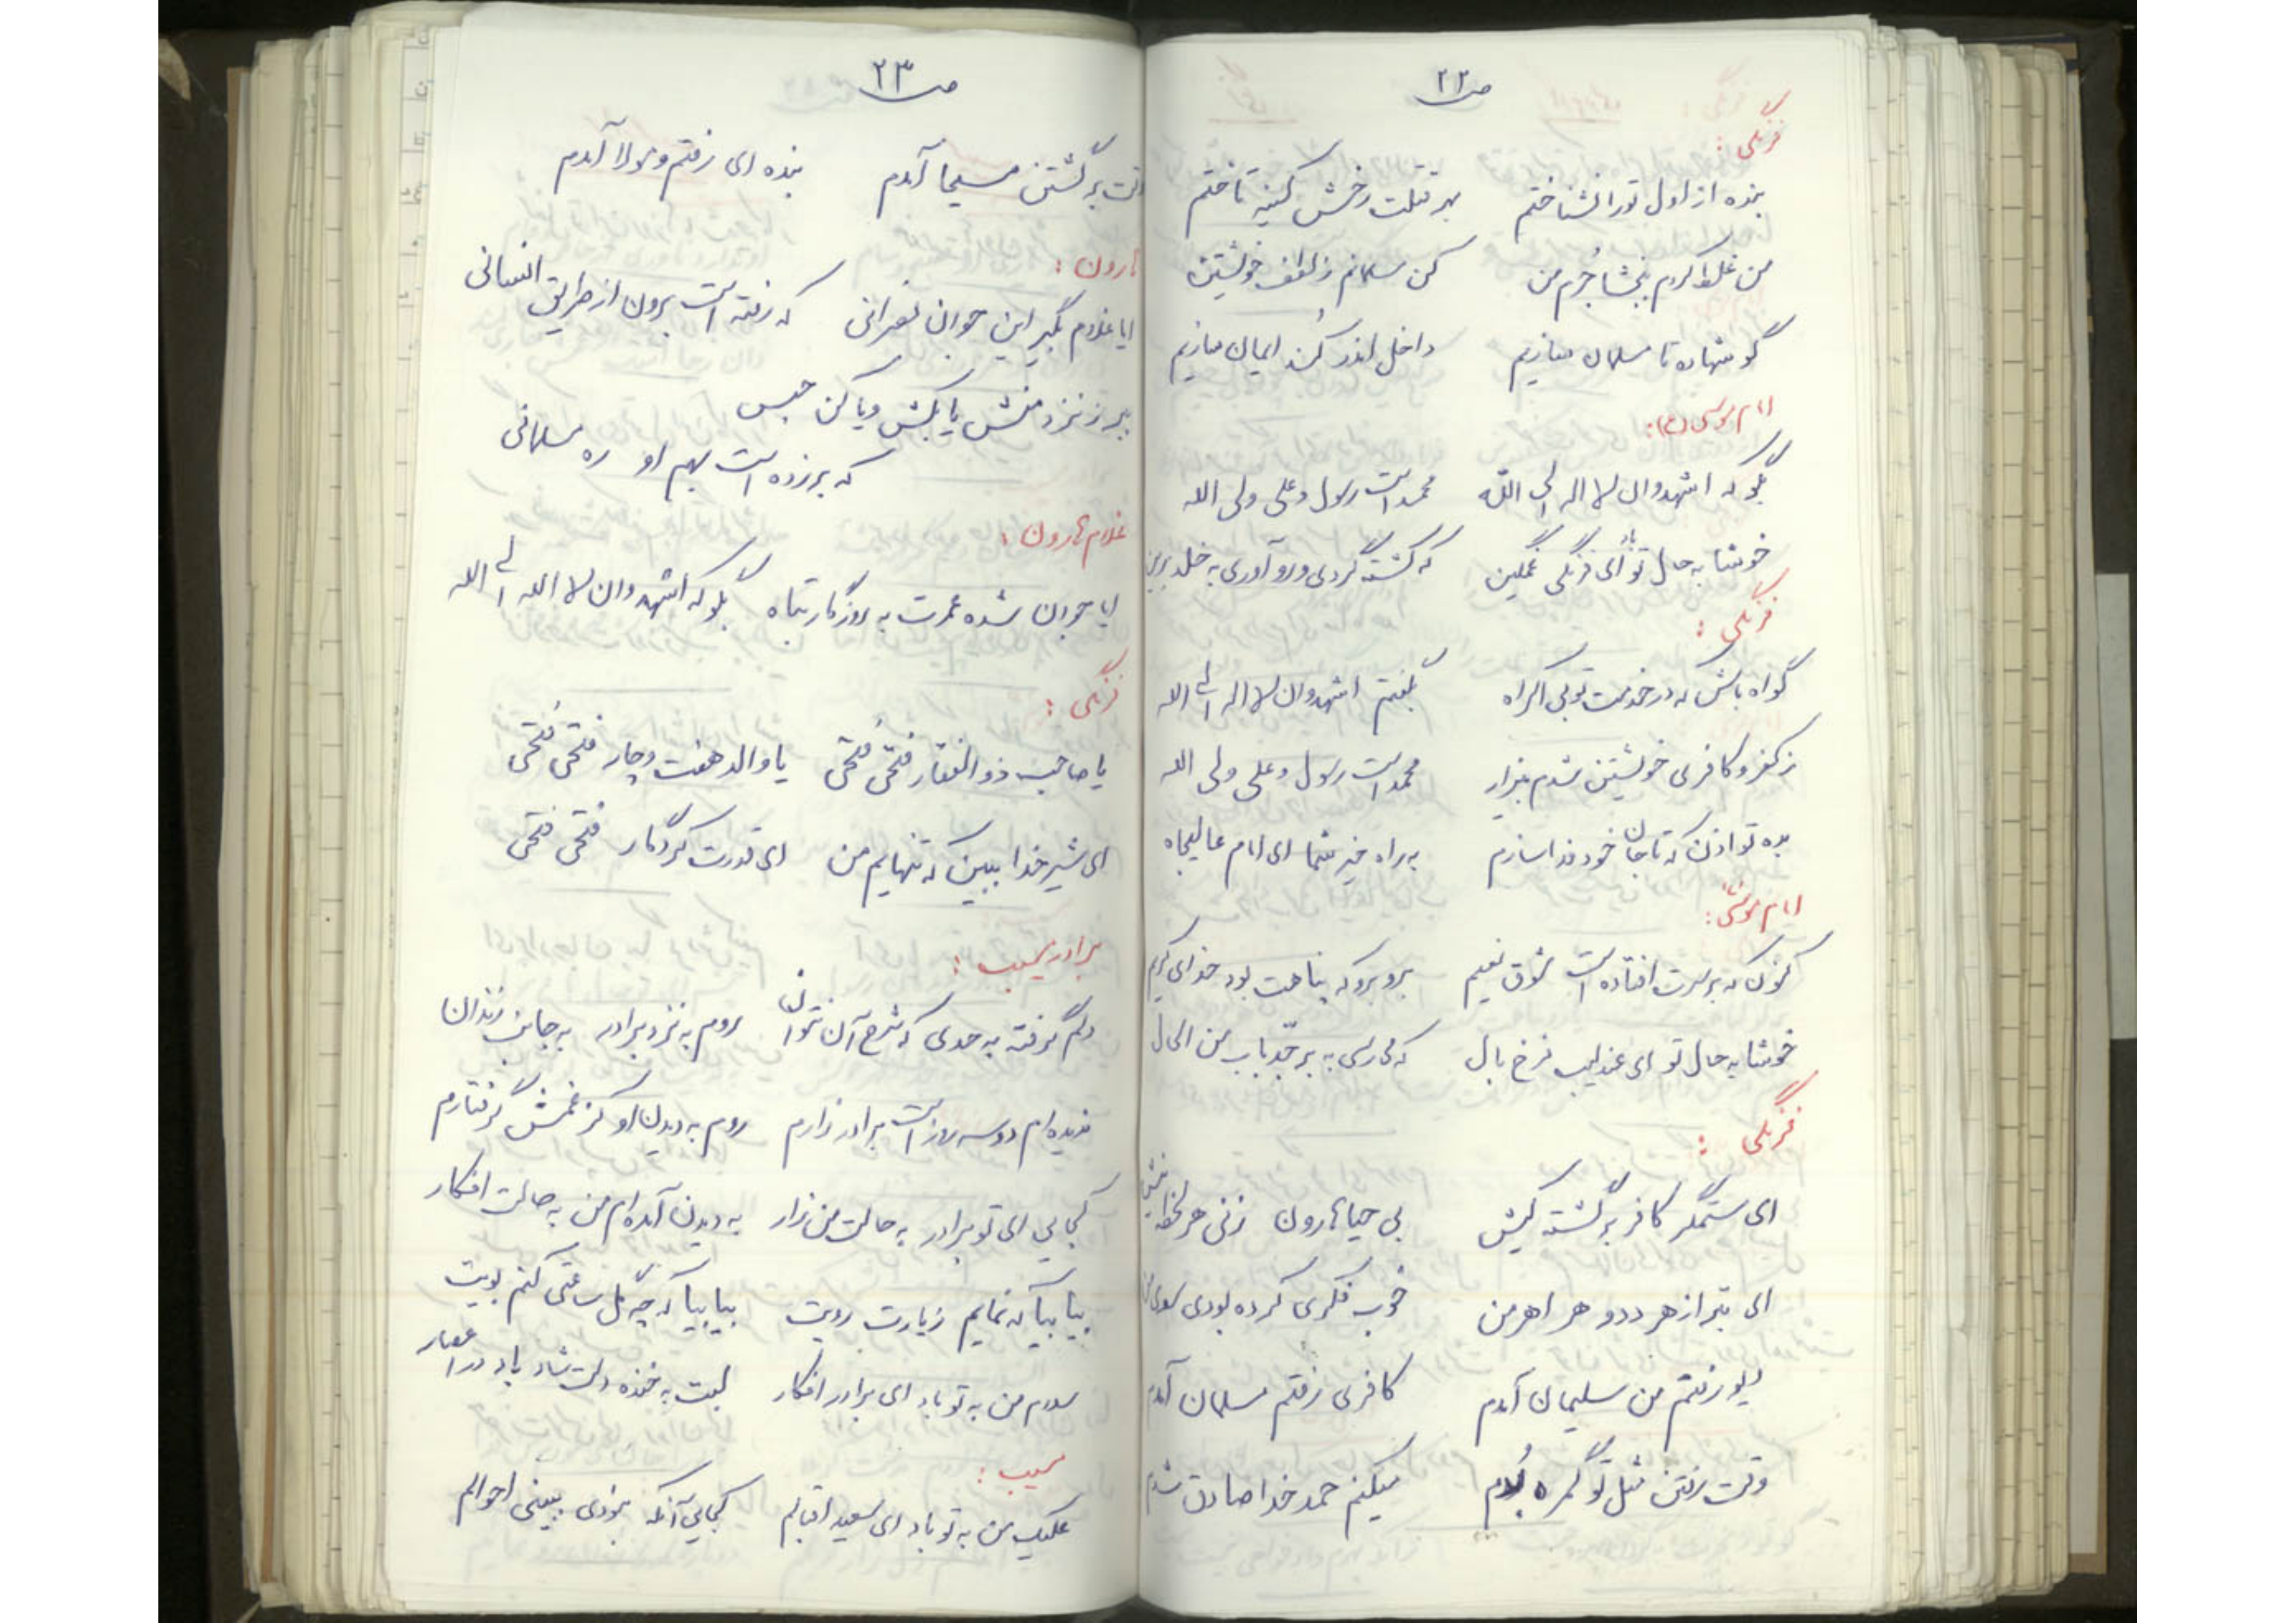 ص ۲۲
فرنگی :
بنده از اول تو را نشناختم بهر قتلت رخش کینه تاختم
من غلط کردم ببخشا جُرم من کن مسلمانم ز لطف خویشتن
گو شهاده تا مسلمان سازیم داخل اندر کُند ایمان سازیم
امام موسی (ع):
بگو که اشهدوان لا اله الی الله محمد است رسول و علی ولی الله
خوشا به حال تو ای فرنگی غمگین که گشته گردی و رو آوری به خلد برین
فرنگی :
گواه باش که در خدمت تو بی اکراه بگفتم اشهدوان لا اله الی الله
ز کفر و کافری خویشتن شدم بیزار محمد است رسول و علی ولی الله
بده تو اذن که تا جان خود فدا سازم به راه خیر شما ای امام عالیجاه
امام موسی:
کنون که بر سرت افتاده است شوق نعیم برو برو که پناهت بود خدای کریم
خوشا به حال تو ای عندلیب فرخ بال که می رسی به بر جدّ باب من الحال
فرنگی :
ای ستمگر کافر برگشته کیش بی حیا هارون زنی هر لحظه نیش
ای بتر از هر دد و هر اهرمن خوب فکری کرده بودی سوی من
دیو رفتم من سلیمان آمدم کافری رفتم مسلمان آمدم
وقت رفتن مثل تو گمره بُدم میکنم حمد خدا صادق شدم
ص ۲۳
وقت برگشتن مسیحا آمدم بنده ای رفتم و مولا آمدم
هارون :
ایا غلام بگیر این جوان نصرانی که رفته است برون از طریق انسانی
ببر ز نزد منش یا بکش و یا کن حبس
که بر زده است بهم او ره مسلمانی
غلام هارون :
ایا جوان شده عمرت به روزگار تباه بگو که اشهدوان لا الله الی الله
فرنگی :
یا صاحب ذوالفقار فتحی فتحی یا والد هفت و چار فتحی فتحی
ای شیر خدا ببین که تنهایم من ای قدرت کردگار فتحی فتحی
برادر مسیب :
دلم گرفته به حدی که شرح آن نتوان روم به نزد برادر به جانب زندان
ندیده ام دو سه روز است برادر زارم روم به دیدن او کز غمش گرفتارم
کجایی ای تو برادر به حالت من زار به دیدن آمده ام من به حالت افکار
بیا بیا که نمایم زیارت رویت بیا بیا که چه گل ساعتی کنم بویت
سلام من به تو باد ای برادر افکار لبت به خنده دلت شاد باد در اعصار
مسیب :
علیک من به تو باد ای سعید اقبالم کجایی آنکه نبودی ببینی احوالم